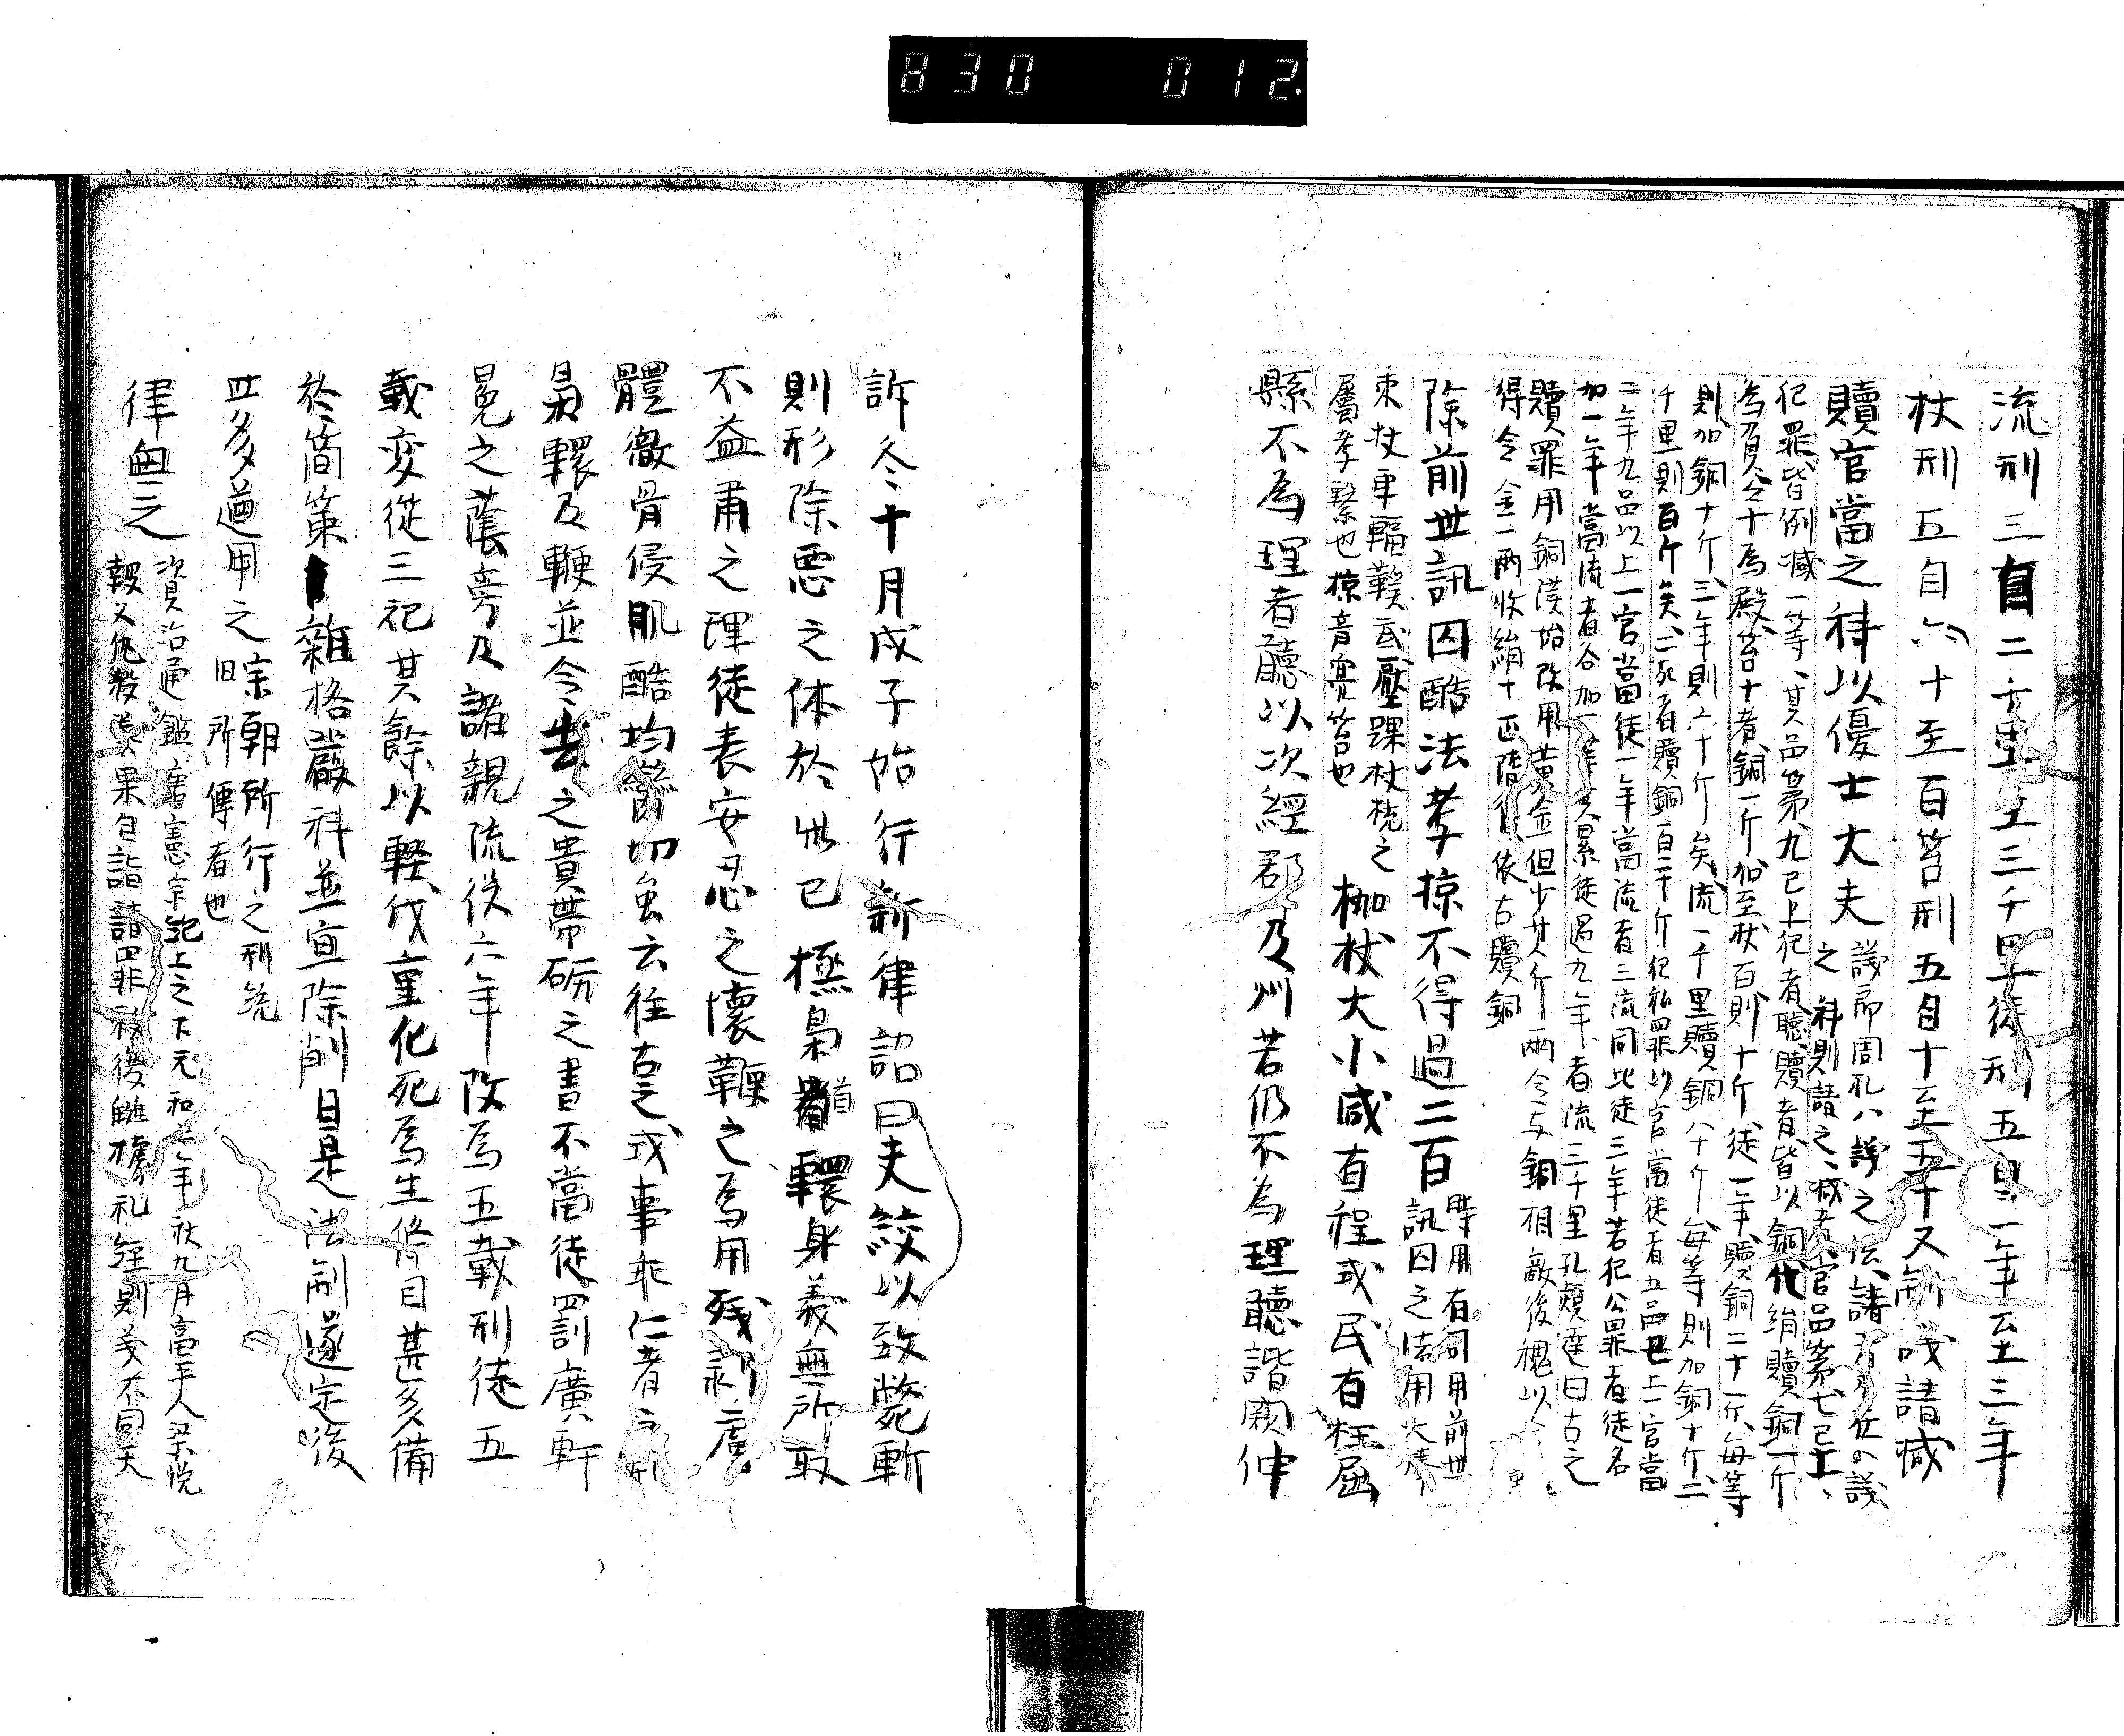 830 012.
流刑三自二千里至三千里徒刑五自一年至三年
杖刑五自六十至百笞刑五自十至五十又制議請減
贖官當之科以優士大夫
議即周礼八議之法請
之科則請之減者官品第七已上
犯罪皆例減一等其品第九已上犯者聴贖贖者皆以銅代絹贖銅一斤
為負負十為殿笞十者銅一斤加至杖百則十斤徒一年贖銅二十斤毎等
則加銅十斤三年則六十斤矣流一千里贖銅八十斤毎等則加銅十斤二
千里則百斤矣二死者贖銅百二十斤犯私罪以官當徒者五品已上一官當
二年九品以上一官當徒一年當流者三流同比徒三年若犯公罪者徒各
加一年當流者各加一年其累徒過九年者流二千里孔穎達曰古之
贖罪用銅漢始改用黄金但少其斤両令与銅相敵後魏以
得令金一両收絹十匹隋律依古贖銅
除前世訊囚酷法考掠不得過二百
時用有司用前世
訊囚之法用大棒
束杖車輻鞵底壓踝杖桄之
屬考繫也掠音亮笞也
枷杖大小咸有程式民有枉屈
縣不為理者聽以次經郡及州若仍不為理聽詣闕伸
訴冬十月戊子始行新律詔曰夫絞以致斃斬
則形除惡之体於此已極梟首轘身義無所取
不益肅之理徒表安忍之懷鞭之為用残剥膚
體徹骨侵肌酷均臠切虽云往古之式事乖仁者之刑
梟轘及鞭並令去之貴帯砺之書不當徒罰廣軒
冕之蔭旁及諸親流役六年改為五載刑徒五
載変從三祀其餘以輕代重化死為生條目甚多備
於簡策雑格嚴科並宜除削自是法制遂定後
世多遵用之
宗朝所行之刑統
旧所傳者也
律無之
資治通鑑唐憲宗紀上之下元和六年秋九月富平人梁悦
報父仇殺秦果自詣請罪 復讎據礼經則義不同天